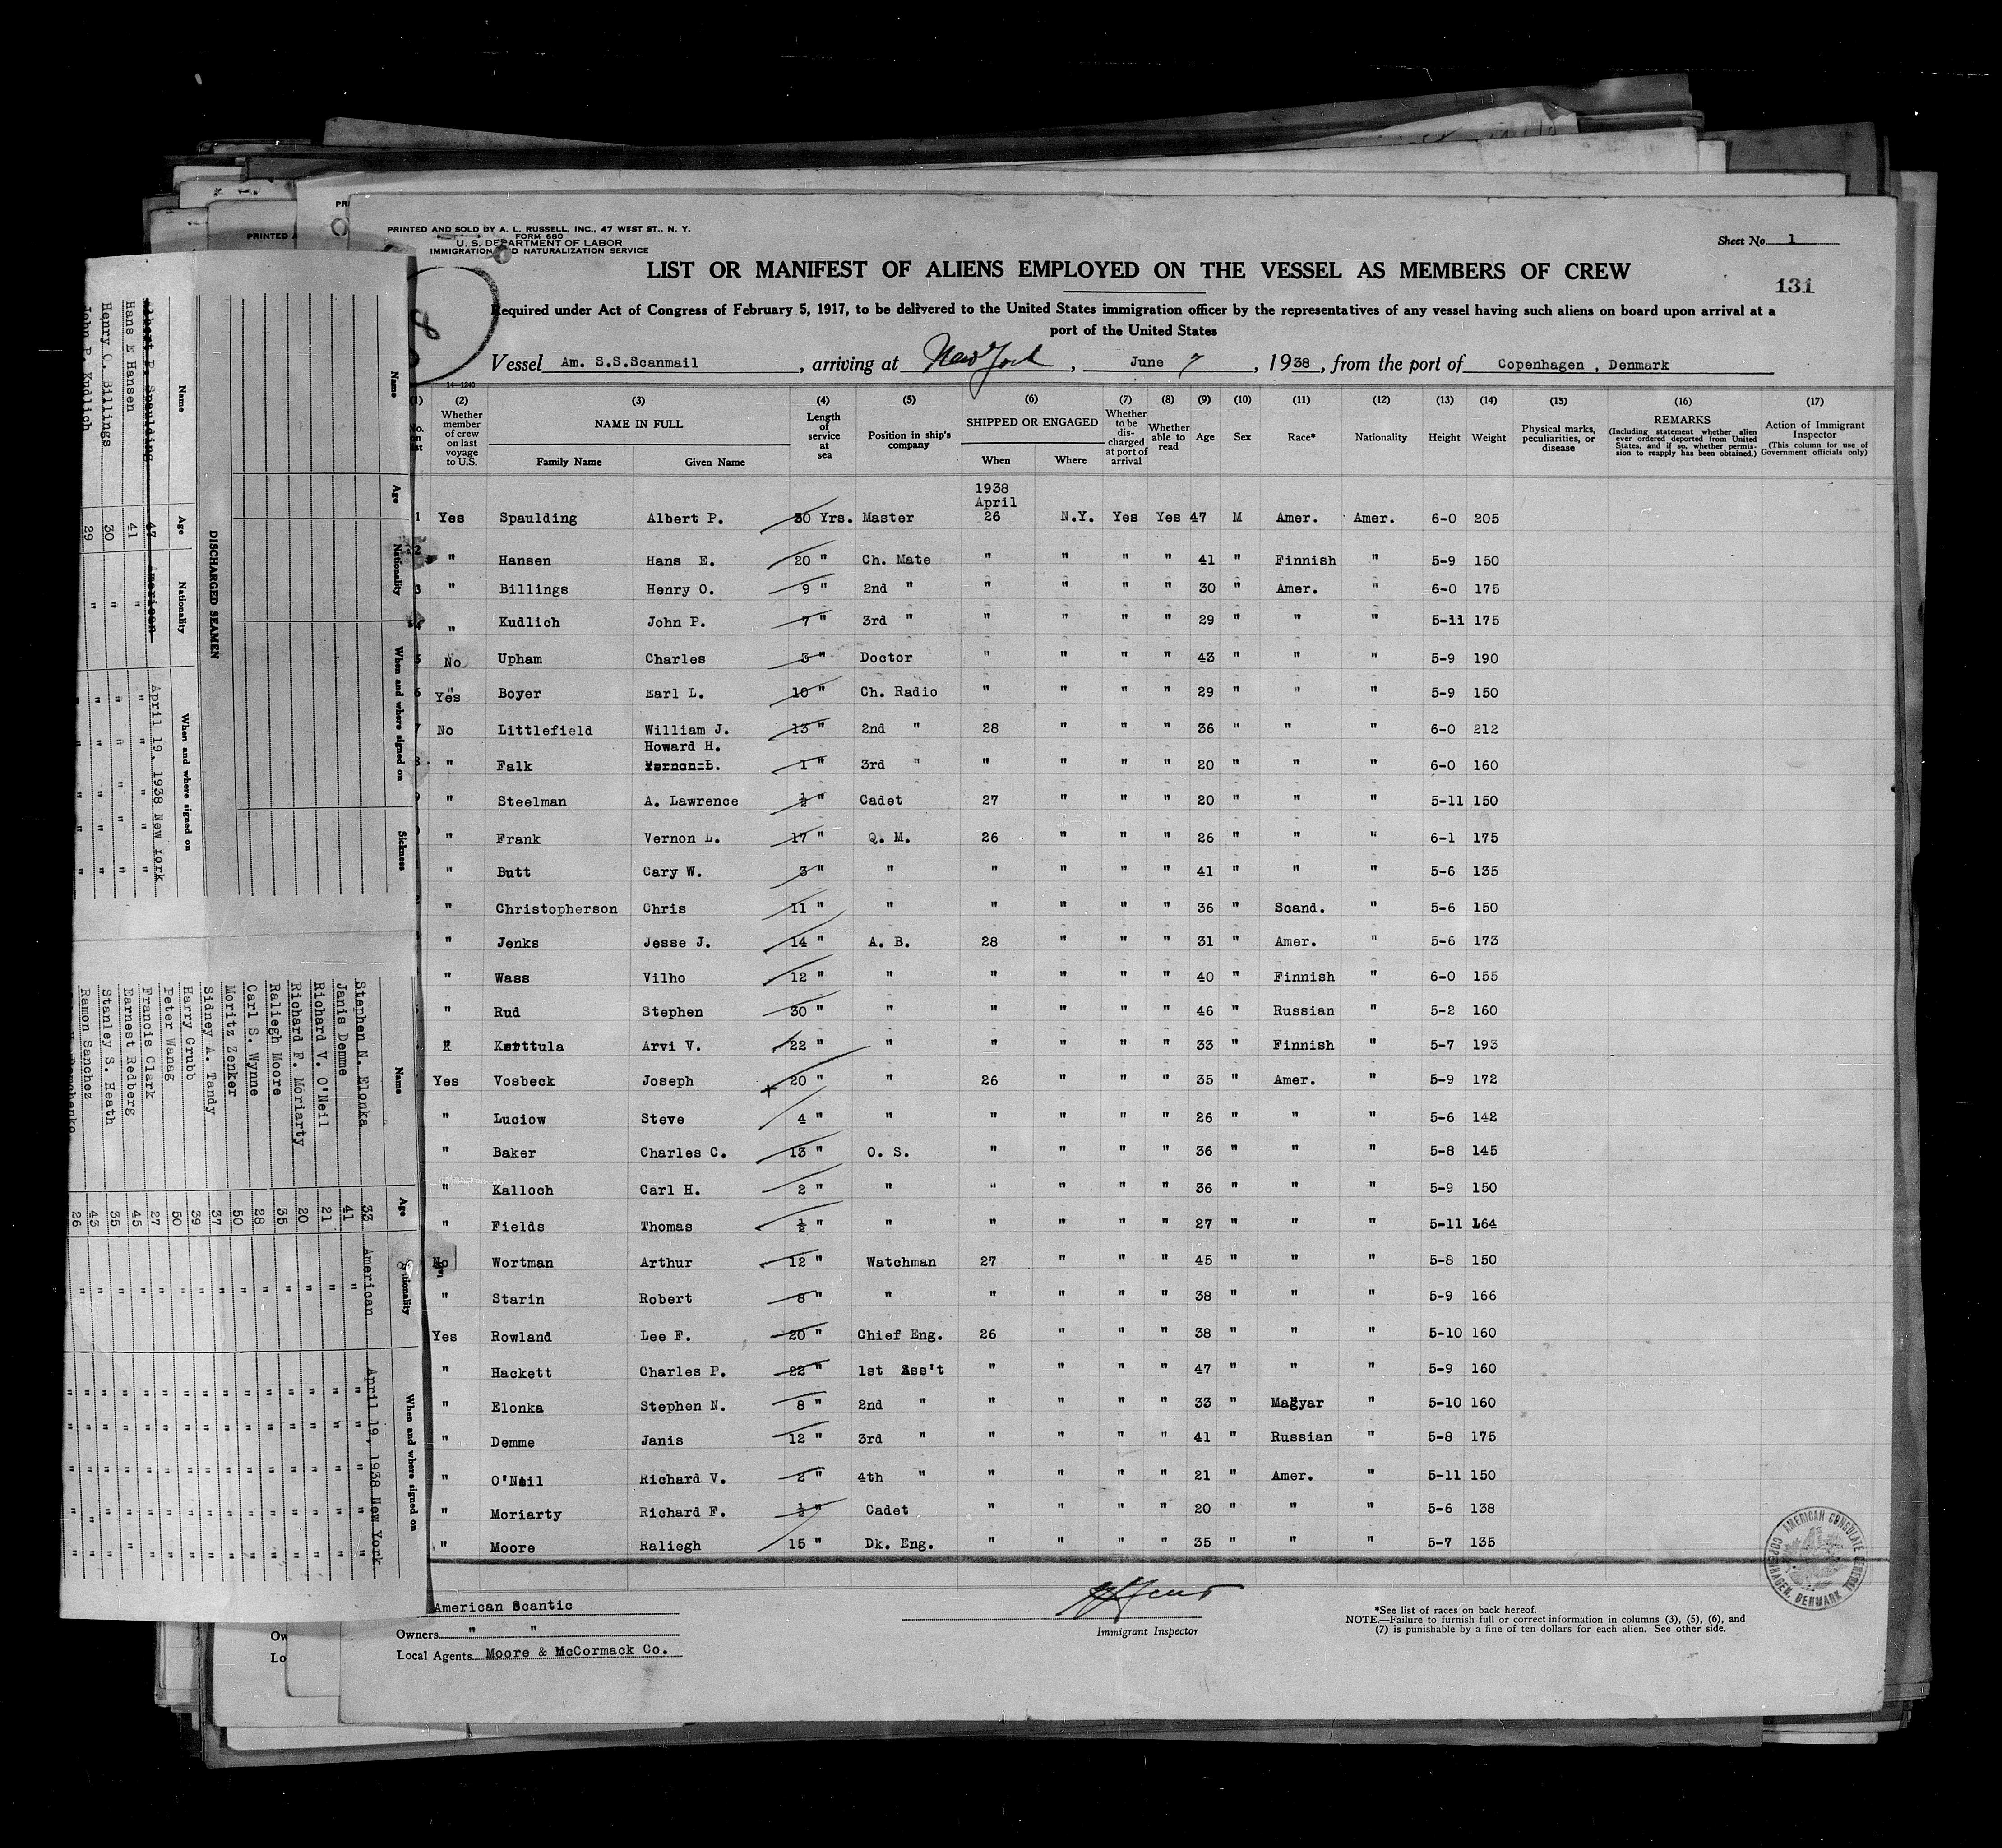 PRINTED AND SOLD BY A. L. RUSSELL, INC., 47 WEST ST., N. Y.
FORM 680
U. S. DEPARTMENT OF LABOR
IMMIGRATION AND NATURALIZATION SERVICE
Sheet No. 1
131
LIST OR MANIFEST OF ALIENS EMPLOYED ON THE VESSEL AS MEMBERS OF CREW
Required under Act of Congress of February 5, 1917, to be delivered to the United States immigration officer by the representatives of any vessel having such aliens on board upon arrival at a
port of the United States
Vessel Am. S.S.Scanmail , arriving at New York , June 7 , 1938 , from the port of Copenhagen , Denmark
14-1240
(2) (3) (4) (5) (6) (7) (8) (9) (10) (11) (12) (13) (14) (15) (16) (17)
Whether member of crew on last voyage to U.S. NAME IN FULL Family Name Given Name Length of service at sea Position in ship's company SHIPPED OR ENGAGED When Where Whether to be discharged at port of arrival Whether able to read Age Sex Race* Nationality Height Weight Physical marks, peculiarities, or disease REMARKS (Including statement whether alien ever ordered deported from United States, and if so, whether permission to reapply has been obtained.) Action of Immigrant Inspector (This column for use of Government officials only)
1938
April
1 Yes Spaulding Albert P. 30 Yrs. Master 26 N.Y. Yes Yes 47 M Amer. Amer. 6-0 205
2 " Hansen Hans E. 20 " Ch. Mate " " " " 41 " Finnish " 5-9 150
3 " Billings Henry O. 9 " 2nd " " " " " 30 " Amer. " 6-0 175
4 " Kudlich John P. 7 " 3rd " " " " " 29 " " " 5-11 175
5 No Upham Charles 3 " Doctor " " " " 43 " " " 5-9 190
6 Yes Boyer Earl L. 10 " Ch. Radio " " " " 29 " " " 5-9 150
7 No Littlefield William J. 13 " 2nd " 28 " " " 36 " " " 6-0 212
Howard H.
8 " Falk Vernon L. 1 " 3rd " " " " " 20 " " " 6-0 160
" Steelman A. Lawrence ½ " Cadet 27 " " " 20 " " " 5-11 150
" Frank Vernon L. 17 " Q. M. 26 " " " 26 " " " 6-1 175
" Butt Cary W. 3 " " " " " " 41 " " " 5-6 135
" Christopherson Chris 11 " " " " " " 36 " Scand. " 5-6 150
" Jenks Jesse J. 14 " A. B. 28 " " " 31 " Amer. " 5-6 173
" Wass Vilho 12 " " " " " " 40 " Finnish " 6-0 155
" Rud Stephen 30 " " " " " " 46 " Russian " 5-2 160
" Arvi V. 22 " " " " " " 33 " Finnish " 5-7 193
Yes Vosbeck Joseph 20 " " 26 " " " 35 " Amer. " 5-9 172
" Luciow Steve 4 " " " " " " 26 " " " 5-6 142
" Baker Charles C. 13 " O. S. " " " " 36 " " " 5-8 145
" Kalloch Carl H. 2 " " " " " " 36 " " " 5-9 150
" Fields Thomas ½ " " " " " " 27 " " " 5-11 164
No Wortman Arthur 12 " Watchman 27 " " " 45 " " " 5-8 150
" Starin Robert 8 " " " " " " 38 " " " 5-9 166
Yes Rowland Lee F. 20 " Chief Eng. 26 " " " 38 " " " 5-10 160
" Hackett Charles P. 22 " 1st Ass't " " " " 47 " " " 5-9 160
" Elonka Stephen N. 8 " 2nd " " " " " 33 " Magyar " 5-10 160
" Demme Janis 12 " 3rd " " " " " 41 " Russian " 5-8 175
" O'Neil Richard V. 2 " 4th " " " " " 21 " Amer. " 5-11 150
" Moriarty Richard F. ½ " Cadet " " " " 20 " " " 5-6 138
" Moore Raliegh 15 " Dk. Eng. " " " " 35 " " " 5-7 135
American Scantic
Owners " "
Local Agents Moore & McCormack Co.
Immigrant Inspector
*See list of races on back hereof.
NOTE.—Failure to furnish full or correct information in columns (3), (5), (6), and
(7) is punishable by a fine of ten dollars for each alien. See other side.
AMERICAN CONSULATE GENERAL
COPENHAGEN, DENMARK
PRINTED
Name Age Nationality When and where signed on Sickness
DISCHARGED SEAMEN
Name Age Nationality When and where signed on
Albert P. Spaulding 47 American April 19, 1938 New York
Hans E Hansen 41 " " " " "
Henry O. Billings 30 " " " " "
John P. Kudlich 29 " " " " "
Name Age Nationality When and where signed on
Stephen N. Elonka 33 American April 19, 1938 New York
Janis Demme 41 " " " " "
Richard V. O'Neil 21 " " " " "
Richard F. Moriarty 20 " " " " "
Raliegh Moore 35 " " " " "
Carl S. Wynne 28 " " " " "
Moritz Zenker 50 " " " " "
Sidney A. Tandy 37 " " " " "
Harry Grubb 39 " " " " "
Peter Wanag 50 " " " " "
Francis Clark 27 " " " " "
Earnest Redberg 45 " " " " "
Stanley S. Heath 35 " " " " "
Ramon Sanchez 43 " " " " "
26 " " " " "